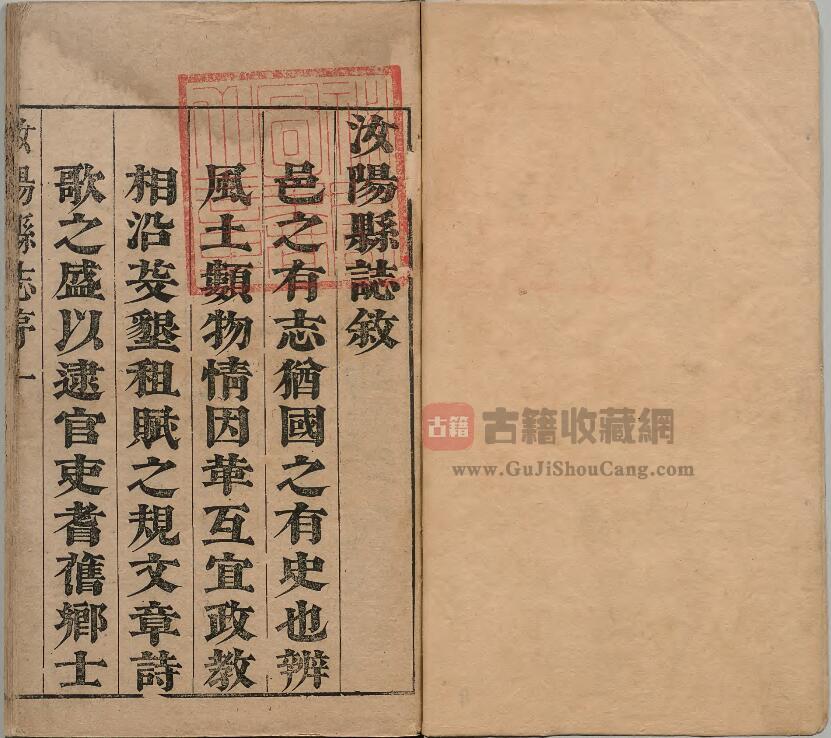 汝陽縣誌敘
邑之有志猶國之有史也辨
風土類物情因革互宜政教
相沿芟墾租賦之規文章詩
歌之盛以逮官吏耆舊鄉士
汝陽縣志序 一
古籍 古籍收藏網
www.GuJiShouCang.com